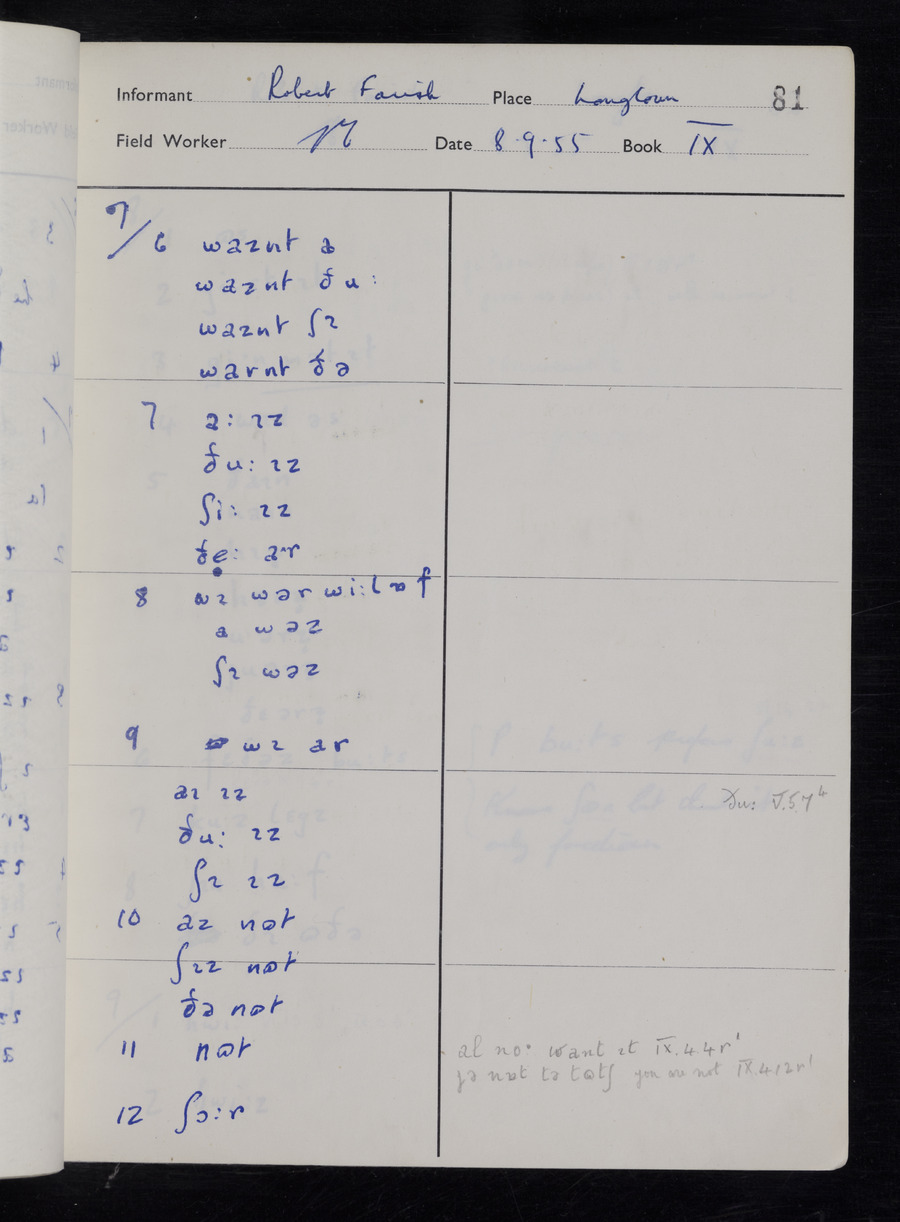 Informant Robert Farish Place Longtown 81
Field Worker Date 8.9.55 Book IX
7/6 waznt a
waznt ðu:
waznt ʃɪ
warnt ðə
7 a: ɪz
ðu: ɪz
ʃi: ɪz
ðe: ar
8 wɪ wər wi:l ɒf
a wəz
ʃɪ wəz
9 wɪ ar
aɪ ɪz
ðu: ɪz Du: V.5.7⁴
ʃɪ ɪz
10 az nɒt
ʃɪz nɒt
ðə nɒt
11 nɒt al no: want ɪt IX.4.4r'
jə nɒt tə tɒtʃ you are not IX.4.12r'
12 ʃɔ:r